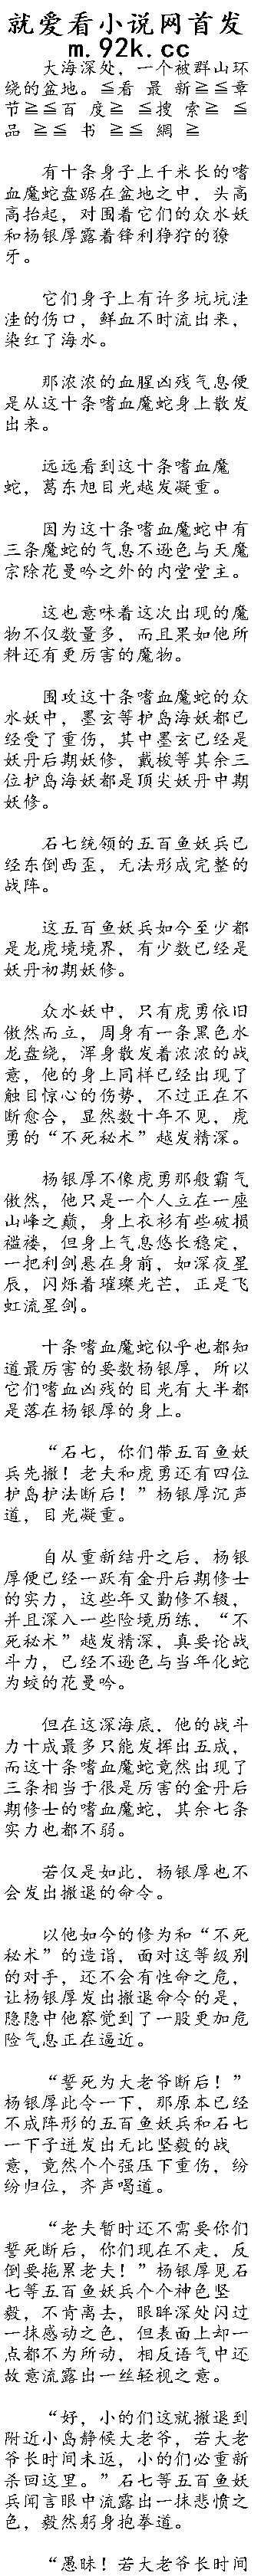 就爱看小说网首发
m.92k.cc
大海深处，一个被群山环
绕的盆地。≦看 最 新≧≦章
节≧≦百 度≧ ≦搜 索≧ ≦
品 ≧≦ 书 ≧≦ 網 ≧
有十条身子上千米长的嗜
血魔蛇盘踞在盆地之中，头高
高抬起，对围着它们的众水妖
和杨银厚露着锋利狰狞的獠
牙。
它们身子上有许多坑坑洼
洼的伤口，鲜血不时流出来，
染红了海水。
那浓浓的血腥凶残气息便
是从这十条嗜血魔蛇身上散发
出来。
远远看到这十条嗜血魔
蛇，葛东旭目光越发凝重。
因为这十条嗜血魔蛇中有
三条魔蛇的气息不逊色与天魔
宗除花曼吟之外的内堂堂主。
这也意味着这次出现的魔
物不仅数量多，而且果如他所
料还有更厉害的魔物。
围攻这十条嗜血魔蛇的众
水妖中，墨玄等护岛海妖都已
经受了重伤，其中墨玄已经是
妖丹后期妖修，戴梭等其余三
位护岛海妖都是顶尖妖丹中期
妖修。
石七统领的五百鱼妖兵已
经东倒西歪，无法形成完整的
战阵。
这五百鱼妖兵如今至少都
是龙虎境境界，有少数已经是
妖丹初期妖修。
众水妖中，只有虎勇依旧
傲然而立，周身有一条黑色水
龙盘绕，浑身散发着浓浓的战
意，他的身上同样已经出现了
触目惊心的伤势，不过正在不
断愈合，显然数十年不见，虎
勇的“不死秘术”越发精深。
杨银厚不像虎勇那般霸气
傲然，他只是一个人立在一座
山峰之巅，身上衣衫有些破损
褴褛，但身上气息悠长稳定，
一把利剑悬在身前，如深夜星
辰，闪烁着璀璨光芒，正是飞
虹流星剑。
十条嗜血魔蛇似乎也都知
道最厉害的要数杨银厚，所以
它们嗜血凶残的目光有大半都
是落在杨银厚的身上。
“石七，你们带五百鱼妖
兵先撤！老夫和虎勇还有四位
护岛护法断后！”杨银厚沉声
道，目光凝重。
自从重新结丹之后，杨银
厚便已经一跃有金丹后期修士
的实力，这些年又勤修不辍，
并且深入一些险境历练，“不
死秘术”越发精深，真要论战
斗力，已经不逊色与当年化蛇
为蛟的花曼吟。
但在这深海底，他的战斗
力十成最多只能发挥出五成，
而这十条嗜血魔蛇竟然出现了
三条相当于很是厉害的金丹后
期修士的嗜血魔蛇，其余七条
实力也都不弱。
若仅是如此，杨银厚也不
会发出撤退的命令。
以他如今的修为和“不死
秘术”的造诣，面对这等级别
的对手，还不会有性命之危，
让杨银厚发出撤退命令的是，
隐隐中他察觉到了一股更加危
险气息正在逼近。
“誓死为大老爷断后！”
杨银厚此令一下，那原本已经
不成阵形的五百鱼妖兵和石七
一下子迸发出无比坚毅的战
意，竟然个个强压下重伤，纷
纷归位，齐声喝道。
“老夫暂时还不需要你们
誓死断后，你们现在不走，反
倒要拖累老夫！”杨银厚见石
七等五百鱼妖兵个个神色坚
毅，不肯离去，眼眸深处闪过
一抹感动之色，但表面上却一
点都不为所动，相反语气中还
故意流露出一丝轻视之意。
“好，小的们这就撤退到
附近小岛静候大老爷，若大老
爷长时间未返，小的们必重新
杀回这里。”石七等五百鱼妖
兵闻言眼中流露出一抹悲愤之
色，毅然躬身抱拳道。
“愚昧！若大老爷长时间